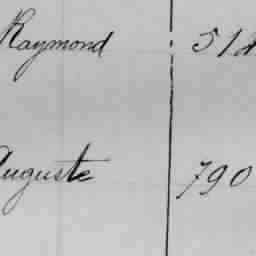 Raymond 51
Auguste 790